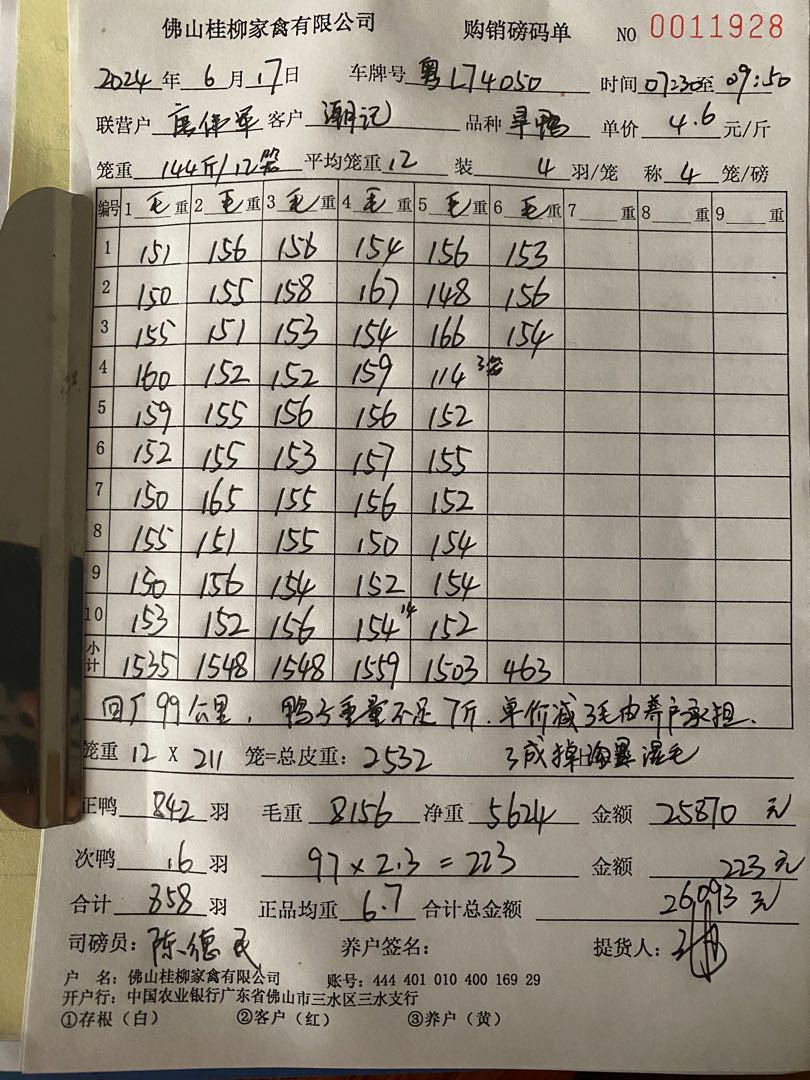 佛山桂柳家禽有限公司 购销磅码单 NO 0011928
2024年6月17日 车牌号 粤L74050 时间 07:30至09:50
联营户 唐伟军 客户 潮记 品种 旱鸭 单价 4.6 元/斤
笼重 144斤/12笼 平均笼重 12 装 4 羽/笼 称 4 笼/磅
编号 1 毛 重 2 毛 重 3 毛 重 4 毛 重 5 毛 重 6 毛 重 7 重 8 重 9 重
1 151 156 156 154 156 153
2 150 155 158 167 148 156
3 155 151 153 154 166 154
4 160 152 152 159 114 3笼
5 159 155 156 156 152
6 152 155 153 157 155
7 150 165 155 156 152
8 155 151 155 150 154
9 150 156 154 152 154
10 153 152 156 154 14 152
小计 1535 1548 1548 1559 1503 463
回厂99公里, 鸭子重量不足7斤, 单价减3毛由养户承担.
笼重 12 X 211 笼=总皮重: 2532 3成掉 湿毛
正鸭 842 羽 毛重 8156 净重 5624 金额 25870 元
次鸭 16 羽 97×2.3=223 金额 223元
合计 858 羽 正品均重 6.7 合计总金额 26093元
司磅员: 陈德民 养户签名: 提货人:
户 名: 佛山桂柳家禽有限公司 账号: 444 401 010 400 169 29
开户行: 中国农业银行广东省佛山市三水区三水支行
①存根(白) ②客户(红) ③养户(黄)